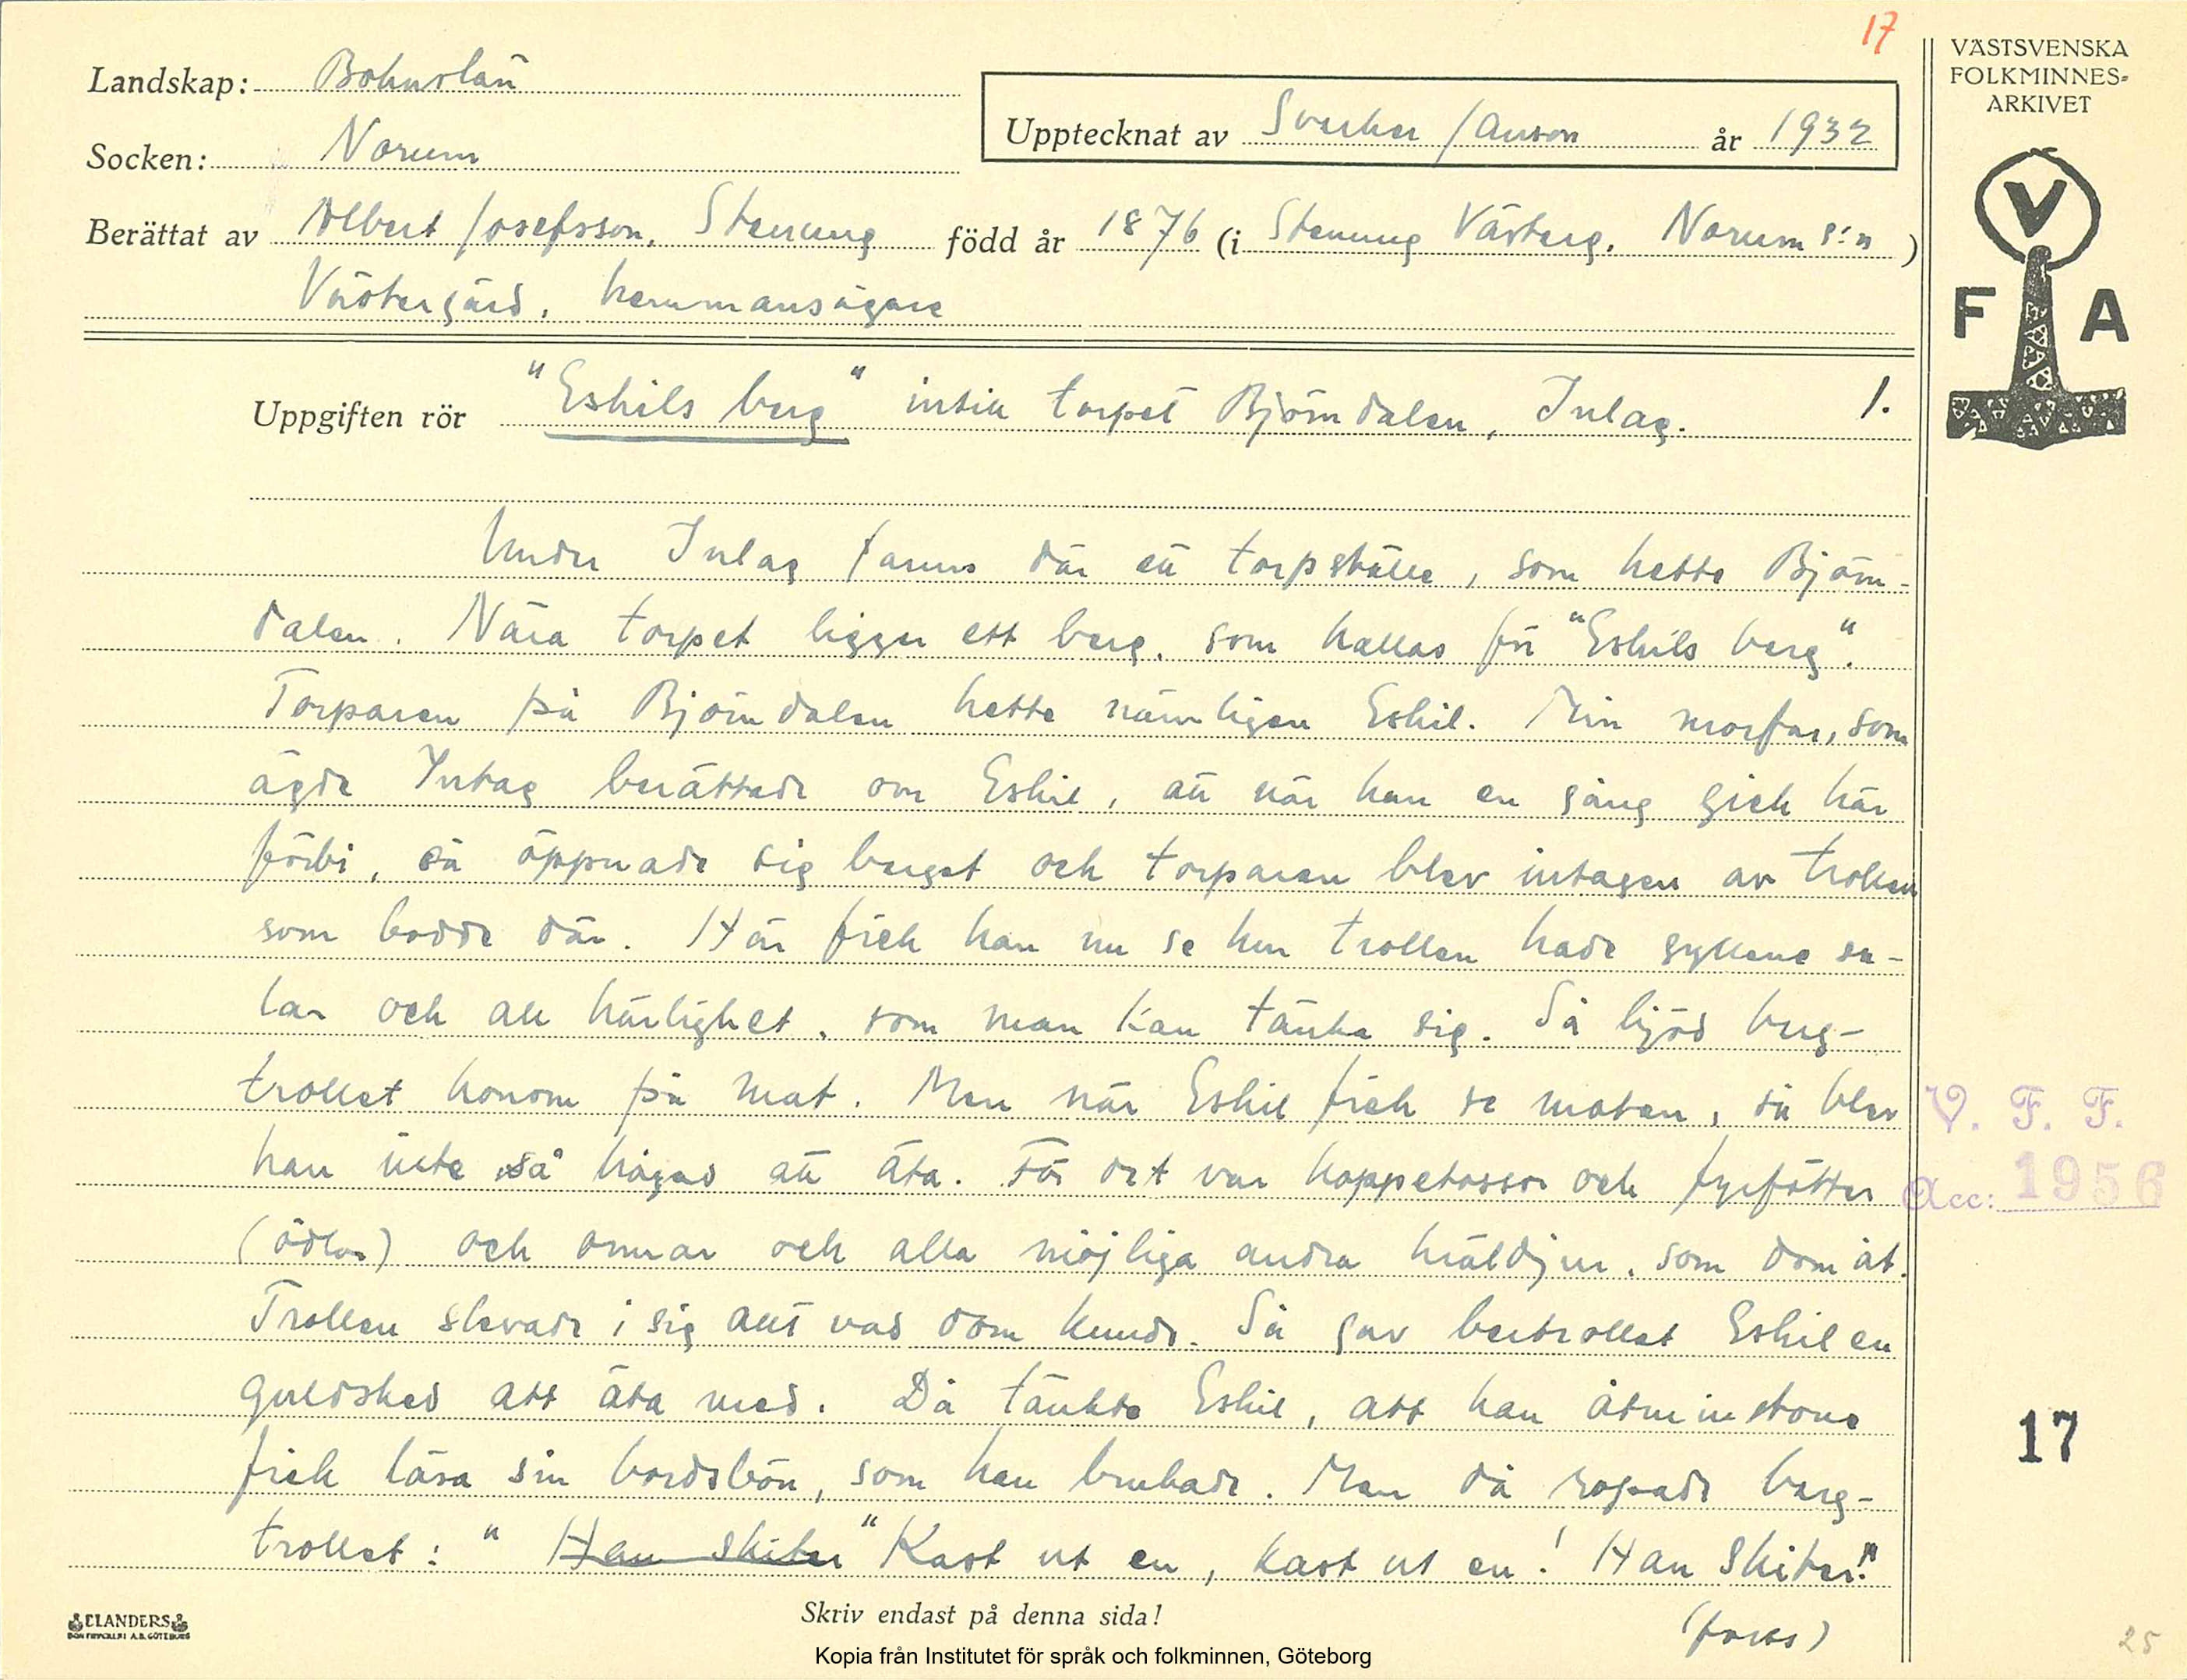 17
VÄSTSVENSKA
FOLKMINNES=
ARKIVET
Landskap: Bohuslän
Upptecknat av Sverker Janson år 1932
Socken: Norum
Berättat av Albert Josefsson, Stenung född år 1876 (i Stenung Västerg. Norum s:n)
Västergård, hemmansägare
V
F A
Uppgiften rör "Eskils berg" intill torpet Björndalen, Inlag. 1.
Under Inlag fanns där ett torpställe, som hette Björn-
dalen. Nära torpet ligger ett berg, som kallas för "Eskils berg".
Torparen på Björndalen hette nämligen Eskil. Min morfar, som
ägde Intag berättade om Eskil, att när han en gång gick här
förbi, så öppnade sig berget och torparen blev intagen av trollen
som bodde där. Här fick han nu se hur trollen hade gyllene sa-
lar och all härlighet, som man kan tänka sig. Så bjöd berg-
trollet honom på mat. Men när Eskil fick se maten, så blev
han inte så hågad att äta. För det var hoppetossor och fyrfötter
(ödlor) och ormar och alla möjliga andra kräldjur, som dom åt.
Trollen slevade i sig allt vad dom kunde. Så gav bertrollet Eskil en
guldsked att äta med. Då tänkte Eskil, att han åtminstone
fick läsa sin bordsbön, som han brukade. Men då ropade berg-
trollet: " Han skiter "Kast ut en, kast ut en! Han skiter!"
(forts)
V. F. F.
Acc: 1956
17
ELANDERS
BOKTRYCKERI A.B. GÖTEBORG
Skriv endast på denna sida!
25
Kopia från Institutet för språk och folkminnen, Göteborg